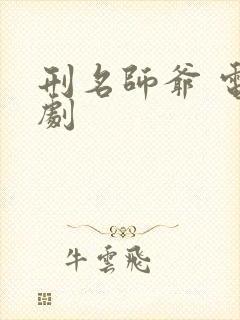 刑名師爺 電
劇
牛雲飛